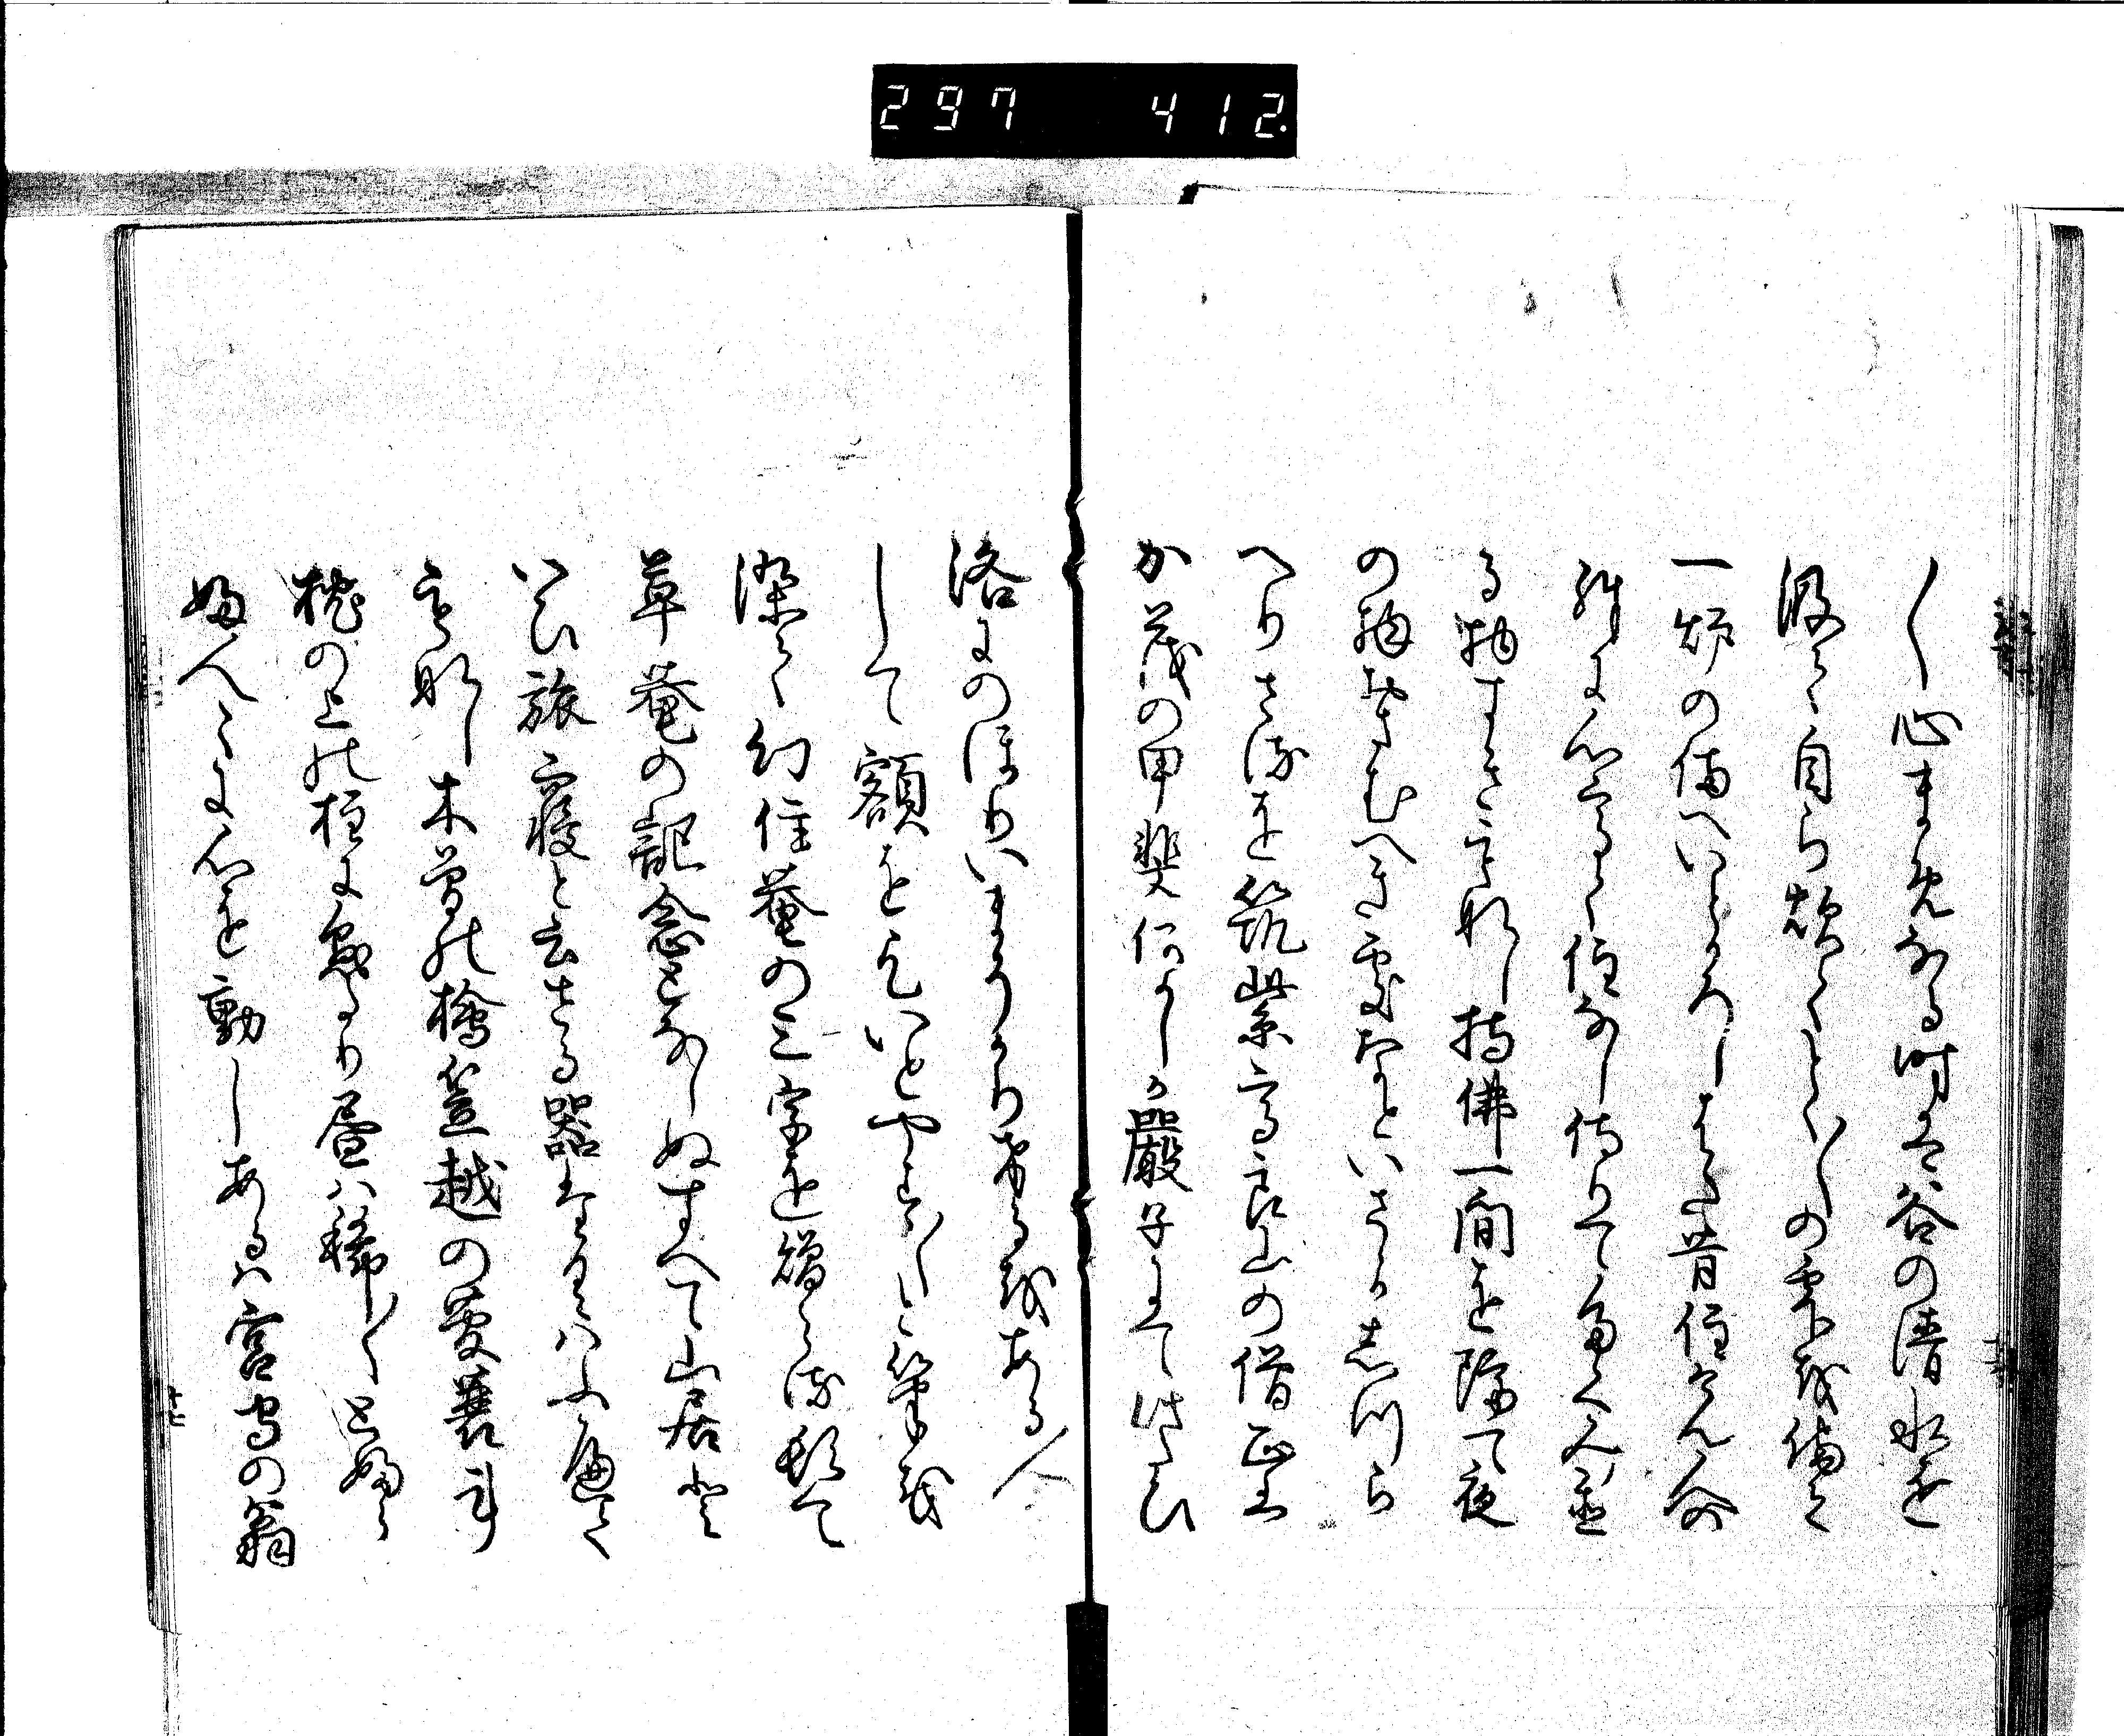 297 412
〱心まめなる時は谷の清水を
汲て自ら炊くとく〱の雫を侘て
一炉の備へいとかろしはた昔住けん人の
殊に心高く住なし侍りてたくみ置
る物すきもなし持佛一間を隔て夜
の物おさむへき處なといさゝかしつら
へりさるを筑紫高良山の僧正は
か茂の甲斐何かしか嚴子にて此たひ
洛にのほりいまそかりけるをある人
して額を乞いとやす〱と筆を
染て幻住菴の三字を贈らる頓て
草菴の記念となしぬすへて山居と
いひ旅寝と云さる器たくはふへく
もなし木曽の檜笠越の菅蓑斗
枕の上の柱に懸たり昼は稀〱とふら
ふ人〻に心を動しあるは宮守の翁